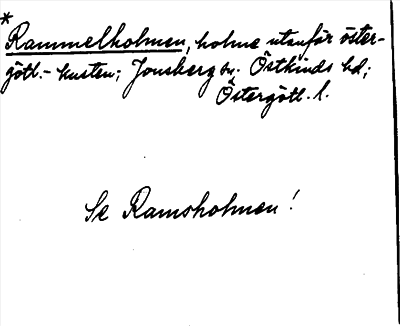 *
Rammelholmen, holme utanför öster-
götl.-kusten; Jonsberg sn. Östkinds hd;
Östergötl. l.
Se Ramsholmen!